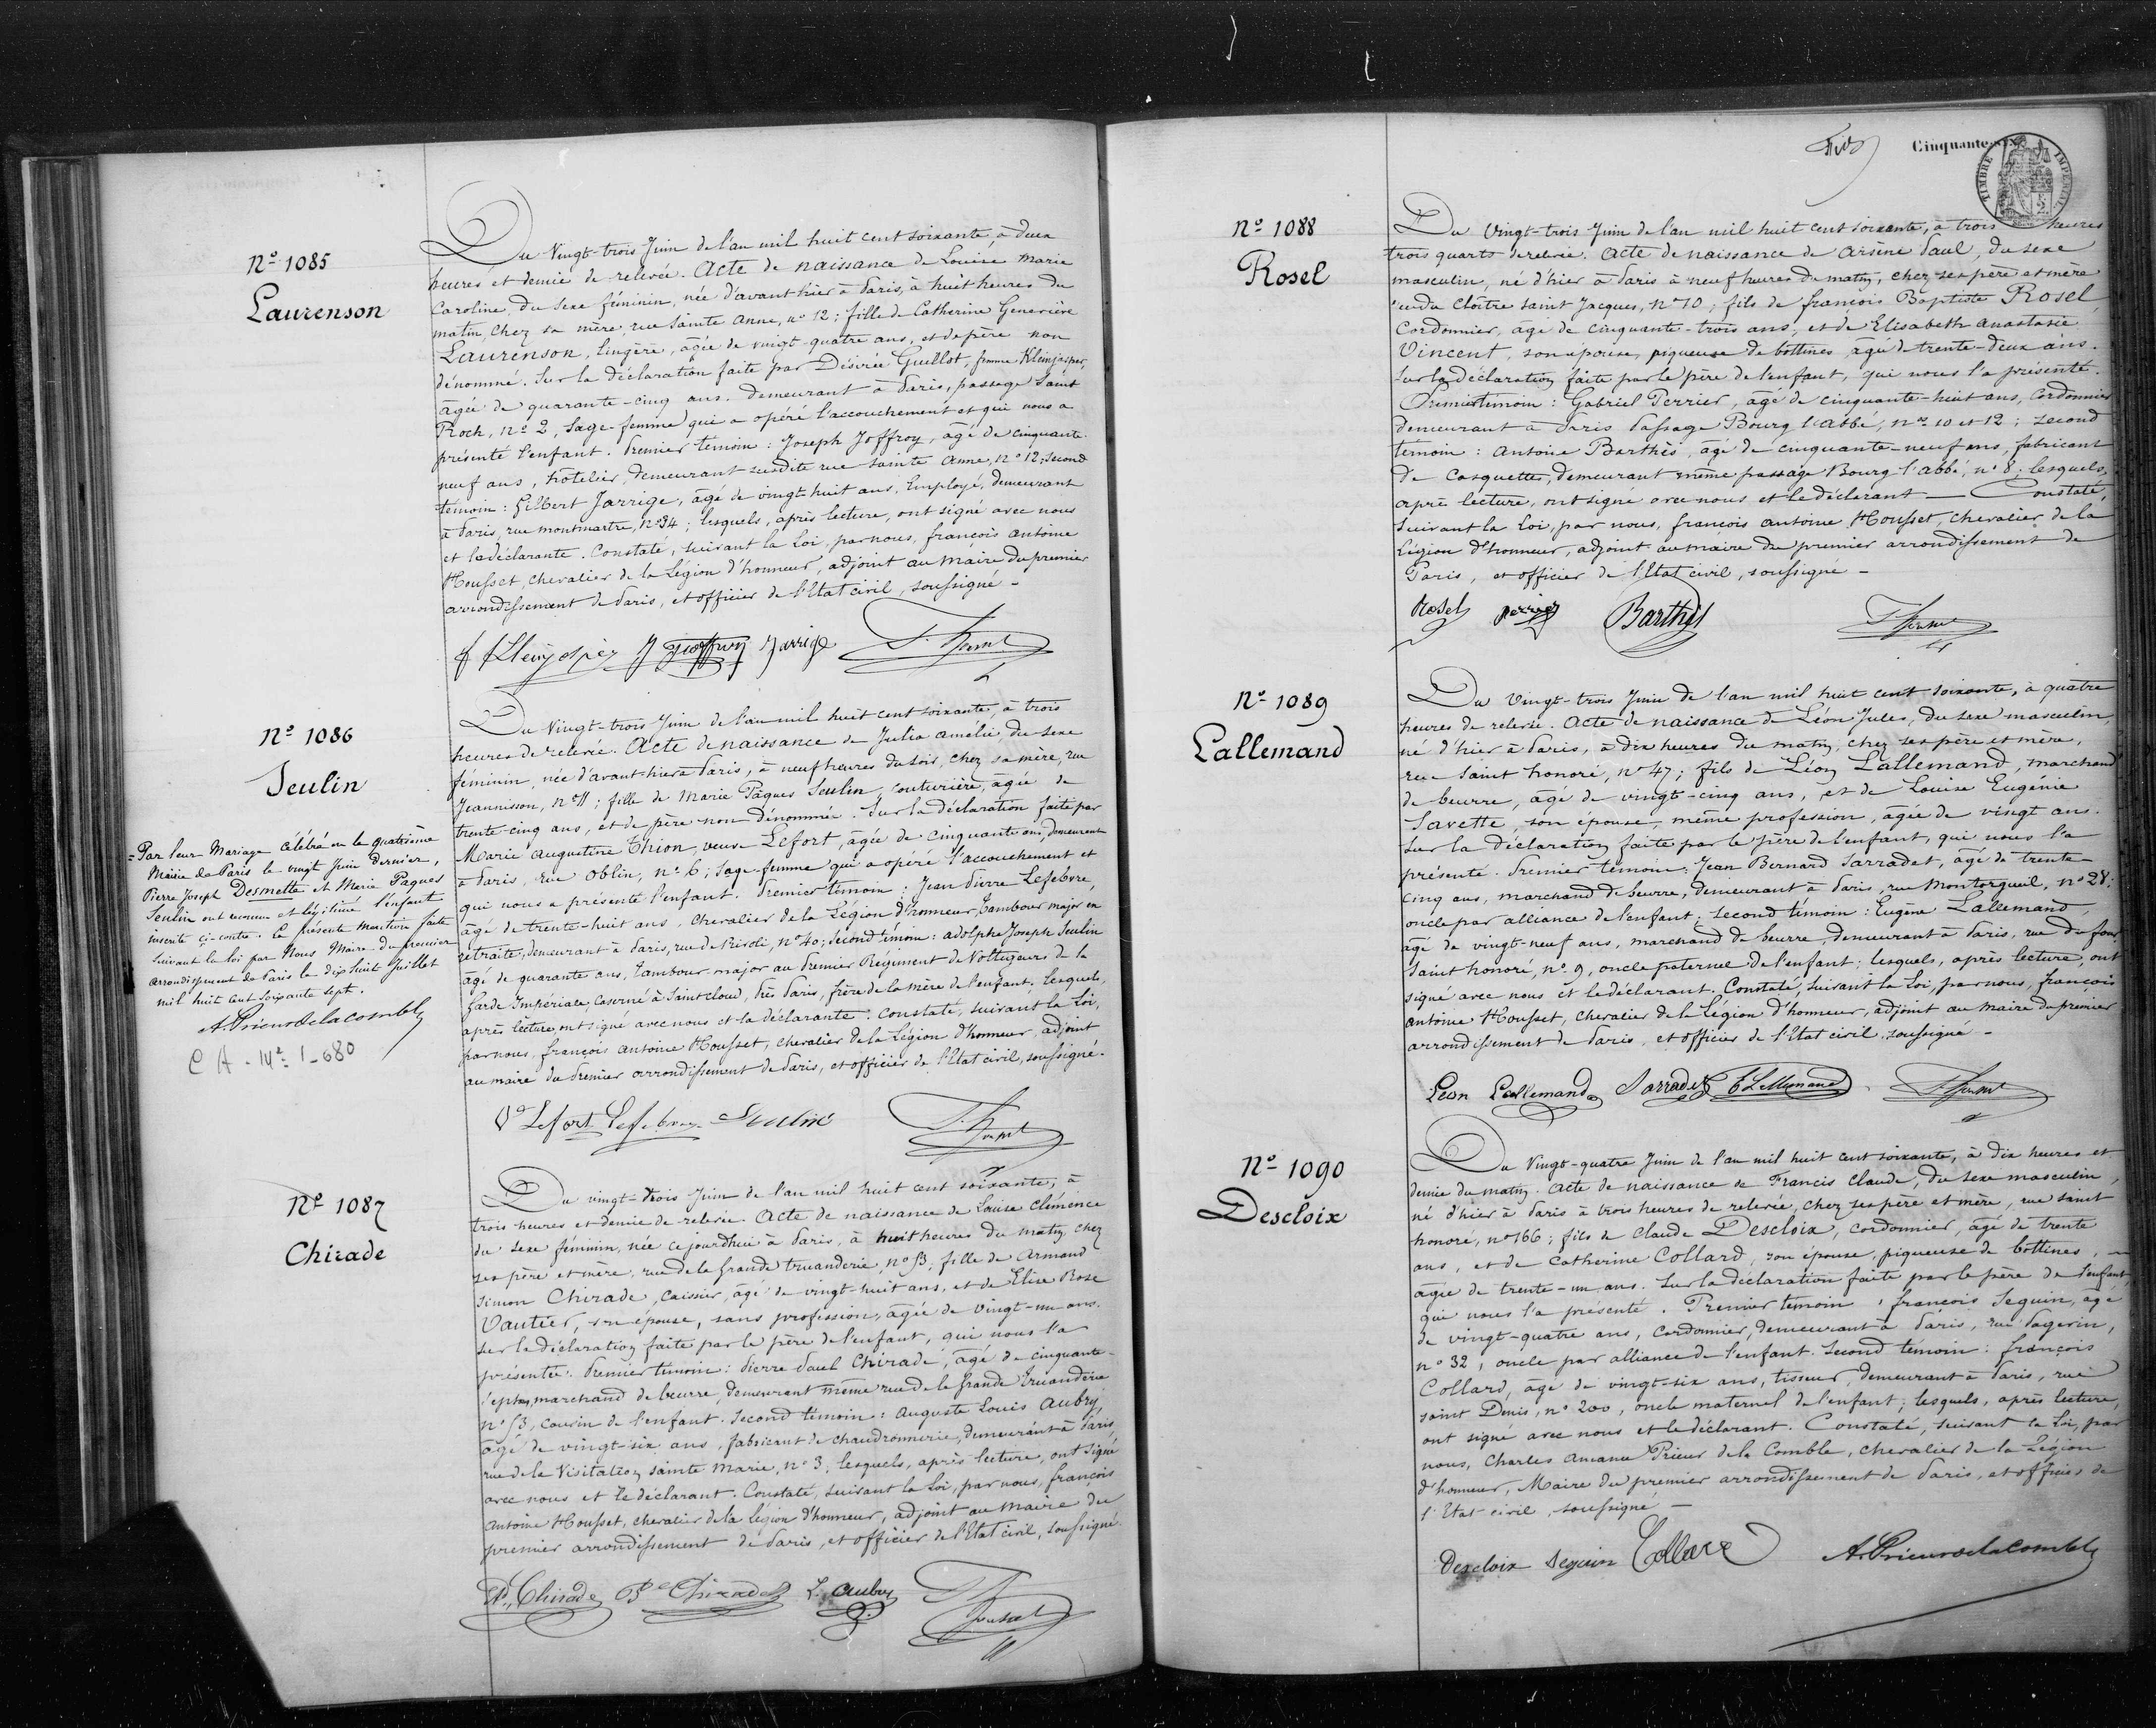 N° 1085
Laurenson
Du Vingt-trois Juin de l'an mil huit cent soixante, à deux
heures et demie de relevée. Acte de naissance de Louise Marie
Caroline, du sexe féminin, née d'avant hier à Paris, à huit heures du
matin, chez sa mère, rue Sainte Anne, n° 12; fille de Catherine Geneviève
Laurenson, lingère, âgée de vingt-quatre ans, et de père non
dénommé. Sur la déclaration faite par Désirée Guillot, femme Kleinjasper,
âgée de quarante-cinq ans. demeurant à Paris, passage Saint
Roch, n° 2, Sage-femme qui a opéré l'accouchement et qui nous a
présenté l'enfant. Premier témoin: Joseph Joffroy, âgé de cinquante-
neuf ans, hôtelier, demeurant susdite rue Sainte Anne, n° 12; second
témoin: Gilbert Jarrige, âgé de vingt-huit ans, Employé, demeurant
à Paris, rue montmartre, n° 34; lesquels, après lecture, ont signé avec nous
et la déclarante. Constaté, suivant la Loi, par nous, françois antoine
Housset, chevalier de la Légion d'honneur, adjoint au maire du premier
arrondissement de Paris, et officier de l'Etat civil, soussigné -
Joffroy Jarrige
N° 1086
Seulin
Du Vingt-trois Juin de l'an mil huit cent soixante, à trois
heures de relevée. Acte de naissance de Julia amélie, du sexe
féminin, née d'avant-hier à Paris, à neuf heures du soir, chez sa mère, rue
Jeannisson, n° 11; fille de Marie Pâques Seulin, couturière, âgée de
trente-cinq ans, et de père non dénommé. Sur la déclaration faite par
Marie Augustine Thion, veuve Lefort, âgée de cinquante ans, demeurant
à Paris, rue Oblin, n° 6; Sage-femme qui a opéré l'accouchement et
qui nous a présenté l'enfant. Premier témoin: Jean Pierre Lefebvre,
âgé de trente-huit ans, Chevalier de la Légion d'honneur, Tambour major en
retraite, demeurant à Paris, rue de Rivoli, n° 40; second témoin: adolphe Joseph Seulin
âgé de quarante ans, tambour major au Premier Régiment de Voltigeurs de la
Garde Impériale, caserné à Saint cloud, près Paris, frère de la mère de l'enfant, lesquels,
après lecture, ont signé avec nous et la déclarante. Constaté, suivant la Loi,
par nous, françois Antoine Housset, chevalier de la Légion d'honneur, adjoint
au maire du Premier arrondissement de Paris, et officier de l'Etat civil, soussigné.
= Par leur Mariage célébré en la quatrième
Mairie de Paris le vingt Juin dernier,
Pierre Joseph Desmette et Marie Paques
Seulin ont reconnu et légitimé l'enfant
inscrite ci-contre. La présente mention faite
suivant la loi par Nous Maire du premier
arrondissement de Paris le dix huit Juillet
mil huit cent soixante sept.
A. Prieur de la Comble
C A - 14e: 1-680
Ve Lefort Lefebvre Seulin
N° 1087
Chirade
Du vingt-trois Juin de l'an mil huit cent soixante, à
trois heures et demie de relevée. Acte de naissance de Louise Clémence
du sexe féminin, née ce jourd'hui à Paris, à huit heures du matin, chez
ses père et mère, rue de la Grande truanderie, n° 53; fille de Armand
Simon Chirade, caissier, âgé de vingt-huit ans, et de Elise Rose
Vautier, son épouse, sans profession, âgée de vingt-un ans.
sur la déclaration faite par le père de l'enfant, qui nous l'a
présentée. Premier témoin: Pierre Paul Chirade, âgé de cinquante-
sept ans, marchand de beurre, demeurant même rue de la Grande Truanderie
n° 53, cousin de l'enfant. Second témoin: Auguste Louis Aubry,
âgé de vingt-six ans, fabricant de chaudronnerie, demeurant à Paris,
rue de la Visitation sainte Marie, n° 3, lesquels, après lecture, ont signé
avec nous et le déclarant. Constaté, suivant la Loi, par nous, françois
Antoine Housset, chevalier de la Légion d'honneur, adjoint au Maire du
premier arrondissement de Paris, et officier de l'Etat civil, soussigné.
Chirade Chirade L. Aubry
Cinquante-six
TIMBRE IMPERIAL
N° 1088
Rosel
Du Vingt-trois Juin de l'an mil huit cent soixante, à trois heures
trois quarts de relevée. Acte de naissance de Arsène Paul, du sexe
masculin, né d'hier à Paris à neuf heures du matin, chez ses père et mère
rue du Cloître Saint Jacques, n° 10; fils de françois Baptiste Rosel
Cordonnier, âgé de cinquante-trois ans, et de Elisabeth anastasie
Vincent, son épouse, piqueuse de bottines, âgée de trente-deux ans.
Sur la déclaration faite par le père de l'enfant, qui nous l'a présenté.
Premier témoin: Gabriel Perrier, âgé de cinquante-huit ans, Cordonnier
demeurant à Paris Passage Bourg l'abbé, nos 10 et 12; second
témoin: Antoine Barthès, âgé de cinquante-neuf ans, fabricant
de Casquettes, demeurant même passage Bourg l'abbé, n° 8; lesquels,
après lecture, ont signé avec nous et le déclarant — Constaté,
suivant la Loi, par nous, françois antoine Housset, Chevalier de la
Légion d'honneur, adjoint au maire du premier arrondissement de
Paris, et officier de l'Etat civil, soussigné -
Rosel Perrier Barthès
N° 1089
Lallemand
Du Vingt-trois Juin de l'an mil huit cent soixante, à quatre
heures de relevée. Acte de naissance de Léon Jules, du sexe masculin,
né d'hier à Paris, à dix heures du matin, chez ses père et mère,
rue Saint honoré, n° 47; fils de Léon Lallemand, marchand
de beurre, âgé de vingt-cinq ans, et de Louise Eugénie
Savette, son épouse, même profession, âgée de vingt ans.
Sur la déclaration faite par le père de l'enfant, qui nous l'a
présenté. Premier témoin: Jean Bernard Sarradet, âgé de trente-
cinq ans, marchand de beurre, demeurant à Paris, rue Montorgueil, n° 28;
oncle par alliance de l'enfant; second témoin: Eugène Lallemand,
âgé de vingt-neuf ans, marchand de beurre, demeurant à Paris, rue du four
Saint honoré, n° 9, oncle paternel de l'enfant; lesquels, après lecture, ont
signé avec nous et le déclarant. Constaté, suivant la Loi, par nous, françois
antoine Housset, chevalier de la Légion d'honneur, adjoint au maire du premier
arrondissement de Paris, et officier de l'Etat civil, soussigné -
Léon Lallemand Sarradet E Lallemand
N° 1090
Descloix
Du Vingt-quatre Juin de l'an mil huit cent soixante, à dix heures et
demie du matin. Acte de naissance de Francis Claude, du sexe masculin,
né d'hier à Paris à trois heures de relevée, chez ses père et mère, rue Saint
honoré, n° 166; fils de Claude Descloix, cordonnier, âgé de trente
ans, et de Catherine Collard, son épouse, piqueuse de bottines,
âgée de trente-un ans. Sur la déclaration faite par le père de l'enfant,
qui nous l'a présenté. Premier témoin, françois Seguin, âgé
de vingt-quatre ans, Cordonnier, demeurant à Paris, rue Pagevin,
n° 32, oncle par alliance de l'enfant. Second témoin: françois
Collard, âgé de vingt-six ans, tisseur, demeurant à Paris, rue
saint Denis, n° 200, oncle maternel de l'enfant; lesquels, après lecture,
ont signé avec nous et le déclarant. Constaté, suivant la Loi, par
nous, Charles Amance Prieur de la Comble, chevalier de la Légion
d'honneur, Maire du premier arrondissement de Paris, et officier de
l'Etat civil, soussigné -
Descloix Seguin Collard A. Prieur de la Comble